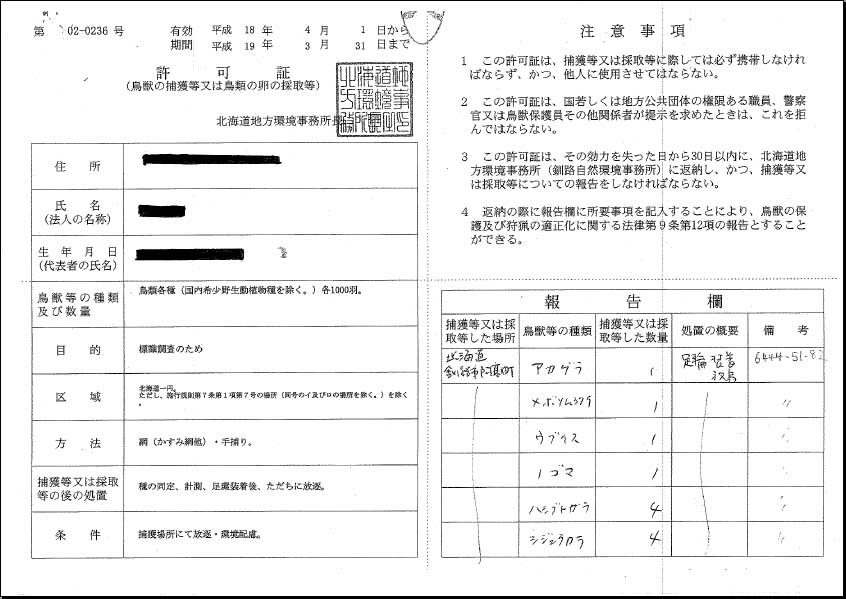 第 02-0236 号
有効 平成 18 年 4 月 1 日から
期間 平成 19 年 3 月 31 日まで
許可証
(鳥獣の捕獲等又は鳥類の卵の採取等)
北海道地方環境事務所長
住所
氏名
(法人の名称)
生年月日
(代表者の氏名)
鳥獣等の種類
及び数量
鳥類各種(国内希少野生動植物種を除く。)各1000羽。
目的
標識調査のため
区域
北海道一円。
ただし、施行規則第7条第1項第7号の場所(同号のイ及びロの場所を除く。)を除く
。
方法
網(かすみ網他)・手捕り。
捕獲等又は採取
等の後の処置
種の同定、計測、足環装着後、ただちに放逐。
条件
捕獲場所にて放逐・環境配慮。
注意事項
1 この許可証は、捕獲等又は採取等に際しては必ず携帯しなけれ
ばならず、かつ、他人に使用させてはならない。
2 この許可証は、国若しくは地方公共団体の権限ある職員、警察
官又は鳥獣保護員その他関係者が提示を求めたときは、これを拒
んではならない。
3 この許可証は、その効力を失った日から30日以内に、北海道地
方環境事務所(釧路自然環境事務所)に返納し、かつ、捕獲等又
は採取等についての報告をしなければならない。
4 返納の際に報告欄に所要事項を記入することにより、鳥獣の保
護及び狩猟の適正化に関する法律第9条第12項の報告とすること
ができる。
報告欄
捕獲等又は採
取等した場所
鳥獣等の種類
捕獲等又は採
取等した数量
処置の概要
備考
北海道
釧路市阿寒町
アカゲラ
1
足輪 翌着
放鳥
6444-51-82
メボソムシクイ
1
〃
ウグイス
1
〃
ノゴマ
1
〃
ハシブトガラ
4
〃
シジュウカラ
4
〃